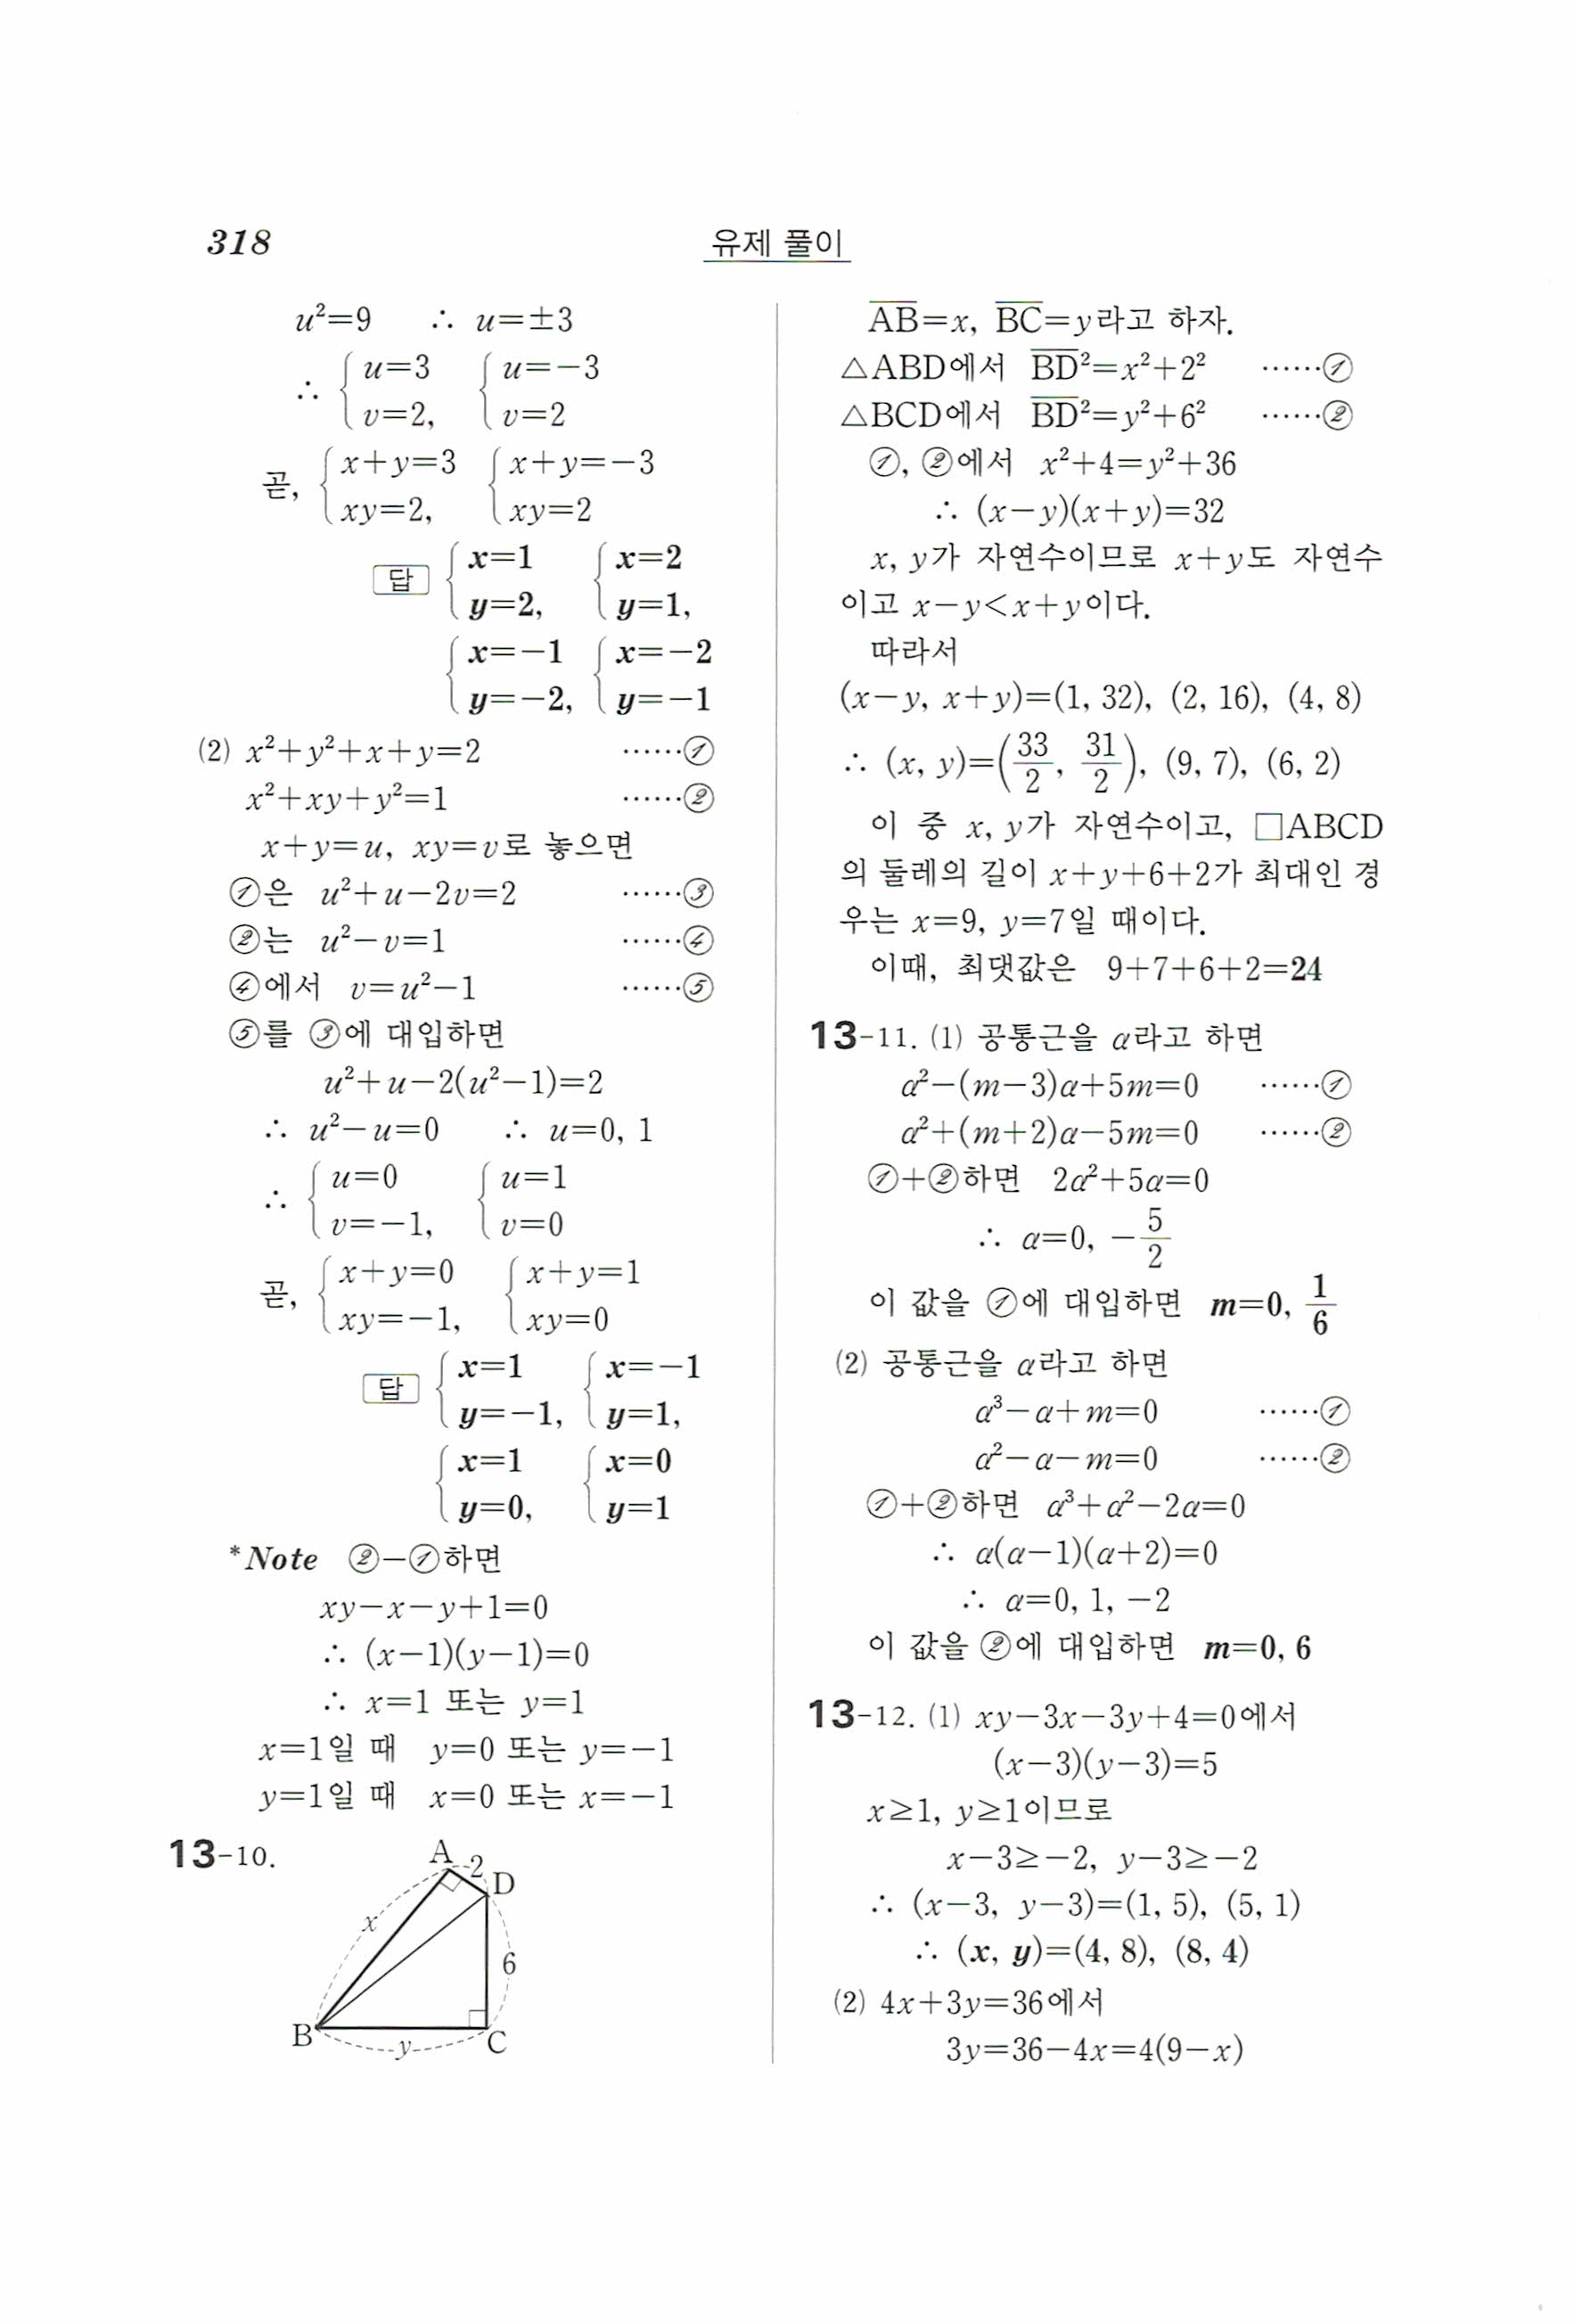 318
유제 풀이
u²=9 ∴ u=±3
∴ { u=3 { u=-3
v=2, v=2
곧, { x+y=3 { x+y=-3
xy=2, xy=2
답 { x=1 { x=2
y=2, y=1,
{ x=-1 { x=-2
y=-2, y=-1
(2) x²+y²+x+y=2 ……①
x²+xy+y²=1 ……②
x+y=u, xy=v로 놓으면
①은 u²+u-2v=2 ……③
②는 u²-v=1 ……④
④에서 v=u²-1 ……⑤
⑤를 ③에 대입하면
u²+u-2(u²-1)=2
∴ u²-u=0 ∴ u=0, 1
∴ { u=0 { u=1
v=-1, v=0
곧, { x+y=0 { x+y=1
xy=-1, xy=0
답 { x=1 { x=-1
y=-1, y=1,
{ x=1 { x=0
y=0, y=1
*Note ②-①하면
xy-x-y+1=0
∴ (x-1)(y-1)=0
∴ x=1 또는 y=1
x=1일 때 y=0 또는 y=-1
y=1일 때 x=0 또는 x=-1
13-10.
A 2 D
x
6
B y C
AB̅=x, BC̅=y라고 하자.
△ABD에서 BD̅²=x²+2² ……①
△BCD에서 BD̅²=y²+6² ……②
①, ②에서 x²+4=y²+36
∴ (x-y)(x+y)=32
x, y가 자연수이므로 x+y도 자연수
이고 x-y<x+y이다.
따라서
(x-y, x+y)=(1, 32), (2, 16), (4, 8)
∴ (x, y)=(33/2, 31/2), (9, 7), (6, 2)
이 중 x, y가 자연수이고, □ABCD
의 둘레의 길이 x+y+6+2가 최대인 경
우는 x=9, y=7일 때이다.
이때, 최댓값은 9+7+6+2=24
13-11. (1) 공통근을 α라고 하면
α²-(m-3)α+5m=0 ……①
α²+(m+2)α-5m=0 ……②
①+②하면 2α²+5α=0
∴ α=0, -5/2
이 값을 ①에 대입하면 m=0, 1/6
(2) 공통근을 α라고 하면
α³-α+m=0 ……①
α²-α-m=0 ……②
①+②하면 α³+α²-2α=0
∴ α(α-1)(α+2)=0
∴ α=0, 1, -2
이 값을 ②에 대입하면 m=0, 6
13-12. (1) xy-3x-3y+4=0에서
(x-3)(y-3)=5
x≥1, y≥1이므로
x-3≥-2, y-3≥-2
∴ (x-3, y-3)=(1, 5), (5, 1)
∴ (x, y)=(4, 8), (8, 4)
(2) 4x+3y=36에서
3y=36-4x=4(9-x)